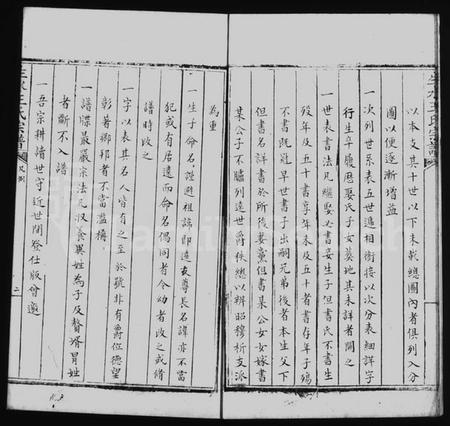 以本支其十世以下未彰總圖內者俱列入分
圖以便逐漸增益
一次列世系表五世遞相銜接以次分表細詳字
行生卒履歷娶氏子女墓地其未詳者闕之
一世表書法凡繼娶必書妾生子但書氏不書生
歿年及五十書享年未及五十者書存年子殤
不書既冠早世書子出嗣兄弟後者本生父下
但書名詳書於所後妻室但書某公女女嫁書
某公子不臚列遠世爵秩總以辨昭穆析支派
為重
一生子命名謹避祖諱即遠支尊長名諱亦不當
犯或有居遠而命名偶同者令幼者改之或脩
譜時改之
一字以表其名人皆有之至於號非有爵位德望
彰著鄉邦者不當濫稱
一譜牒最嚴宗法凡收養異姓為子及贅壻冒姓
者斷不入譜
一吾宗耕讀世守近世間登仕版會遜
王氏宗譜
凡例
二